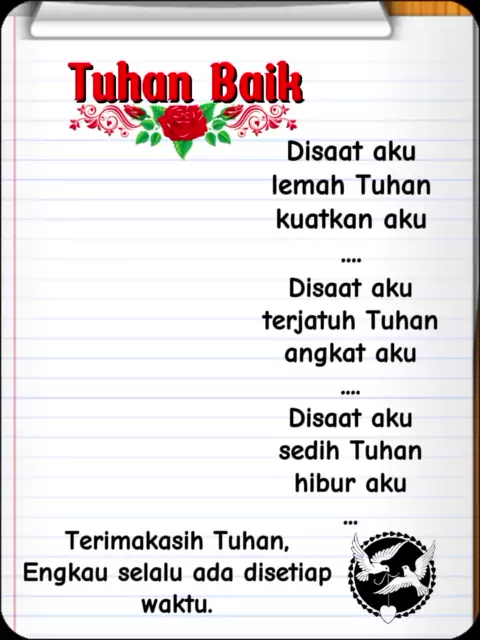 Tuhan Baik
Disaat aku
lemah Tuhan
kuatkan aku
....
Disaat aku
terjatuh Tuhan
angkat aku
....
Disaat aku
sedih Tuhan
hibur aku
...
Terimakasih Tuhan,
Engkau selalu ada disetiap
waktu.